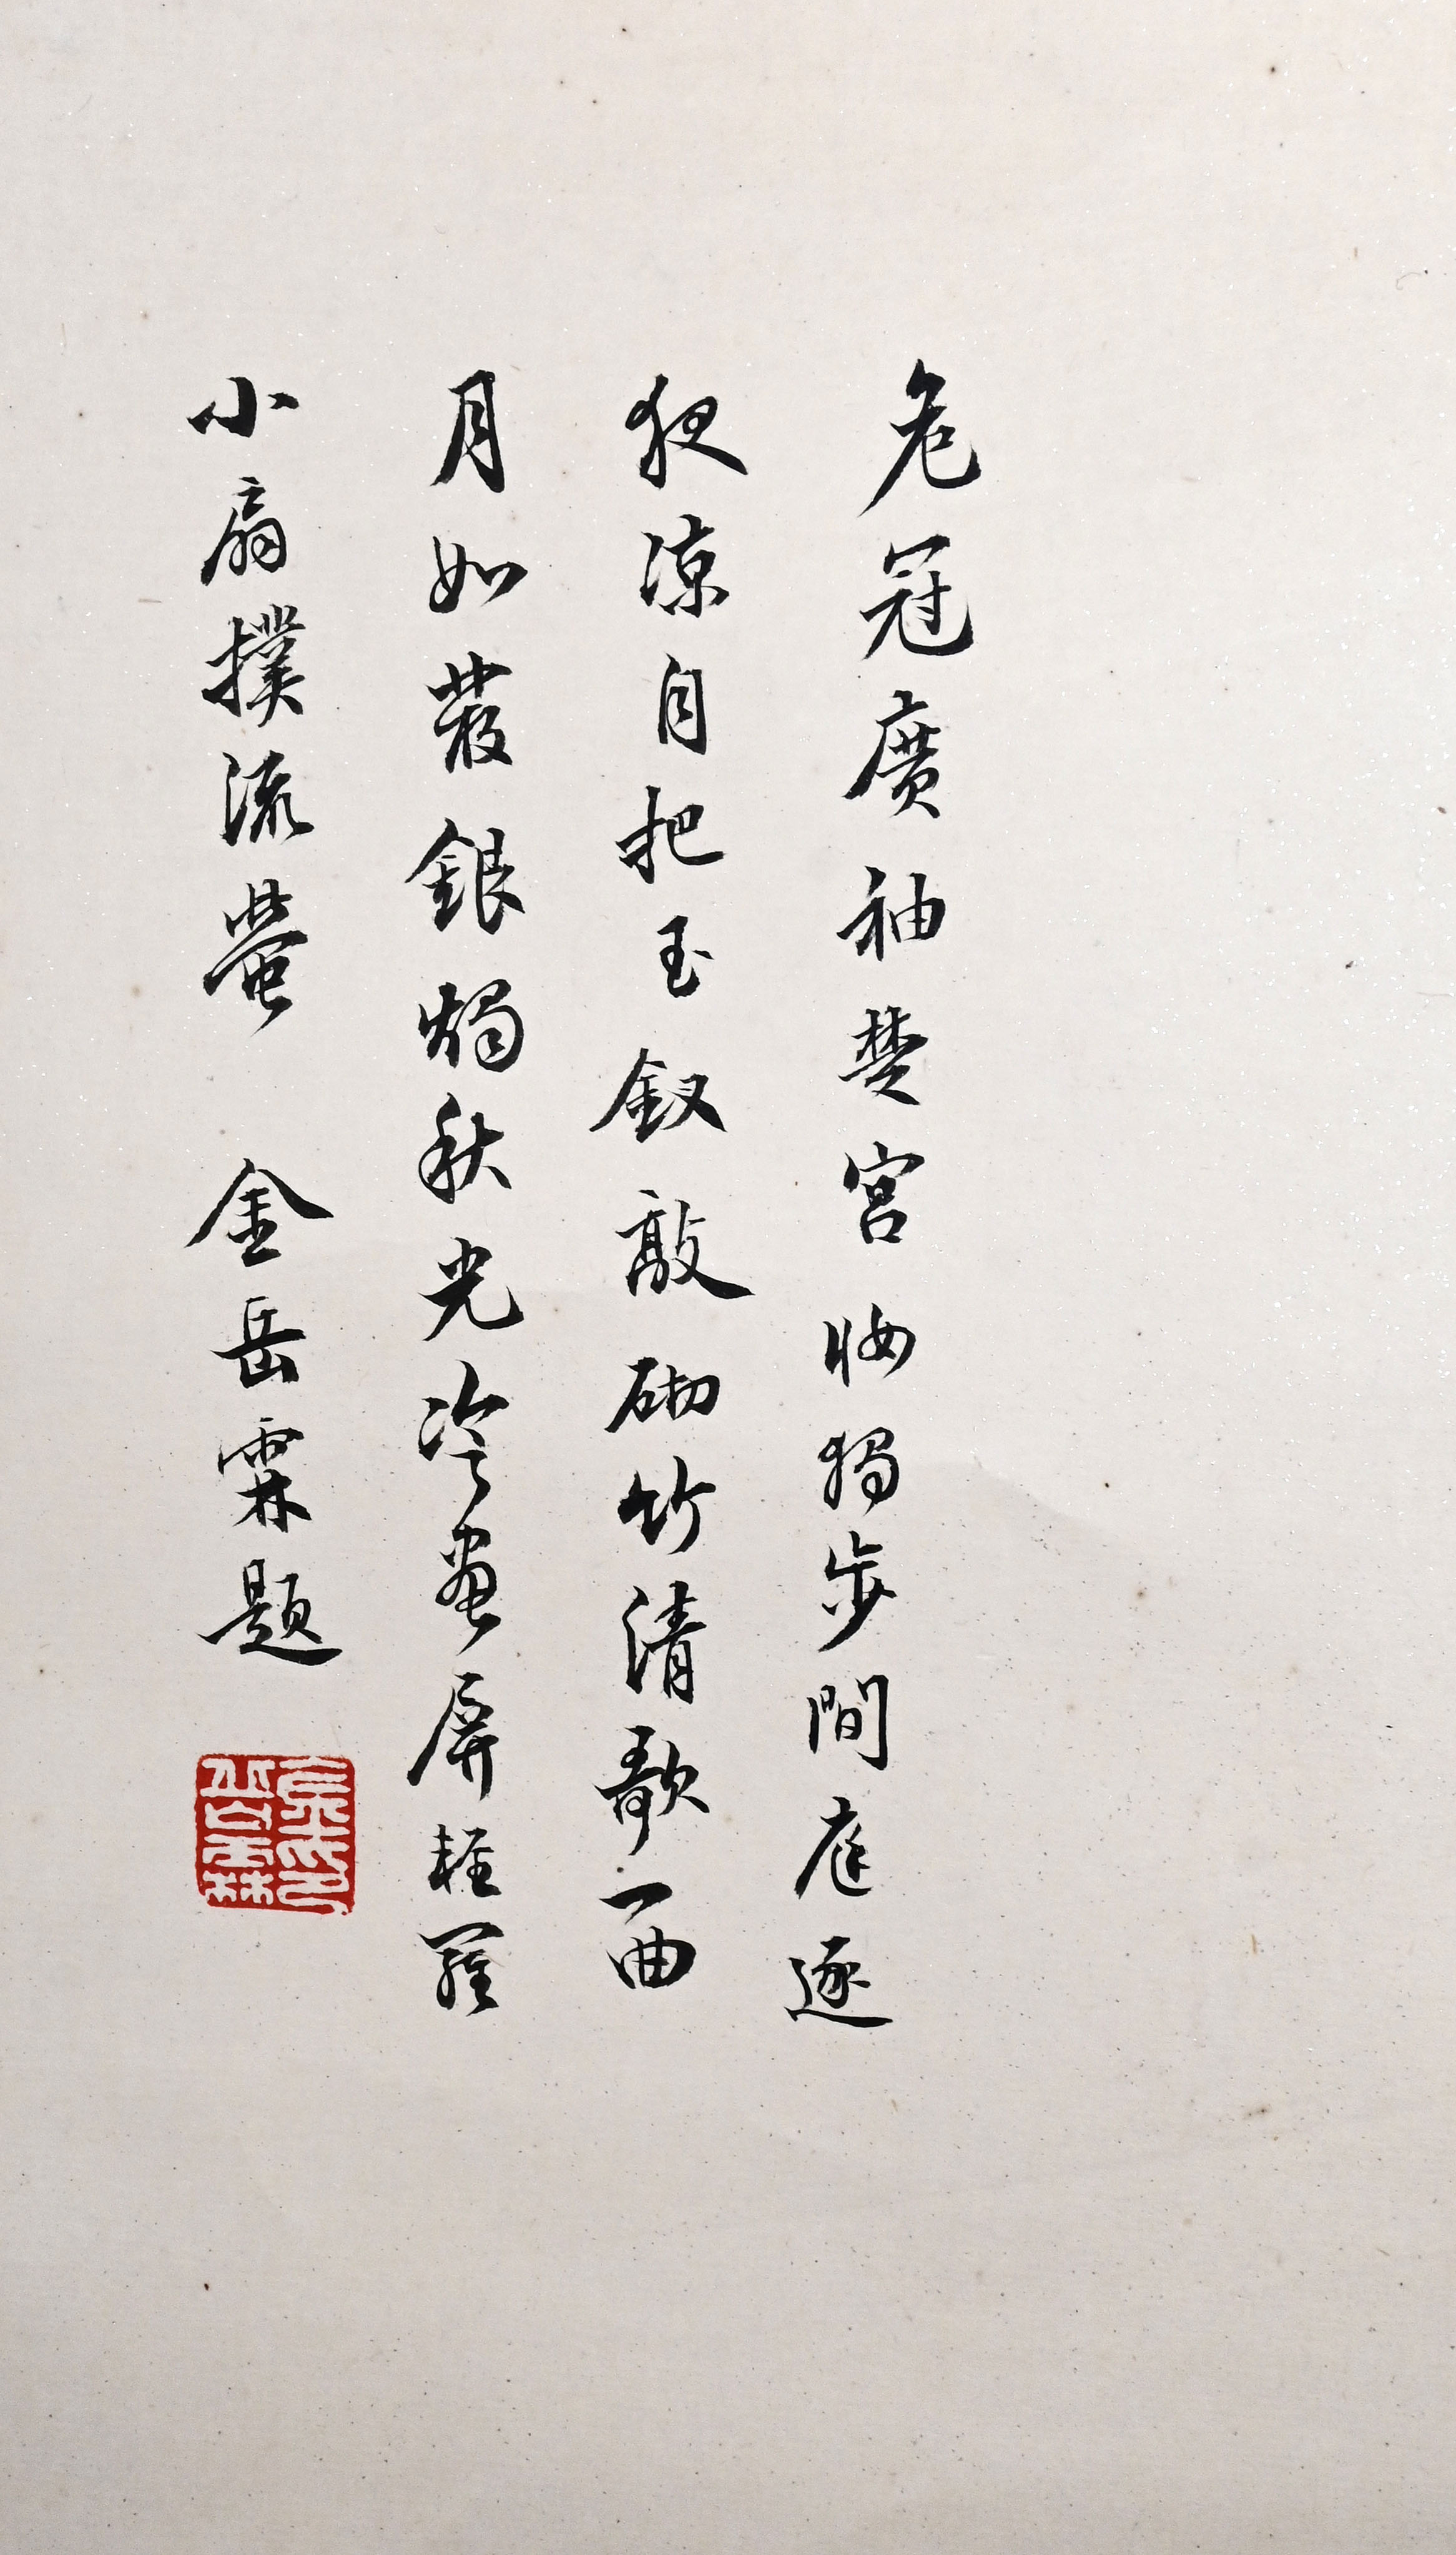 危冠廣袖楚宮妝獨步間庭逐
夜涼自把玉釵敲砌竹清歌一曲
月如銀燭秋光冷畫屏輕羅
小扇撲流螢 金岳霖題